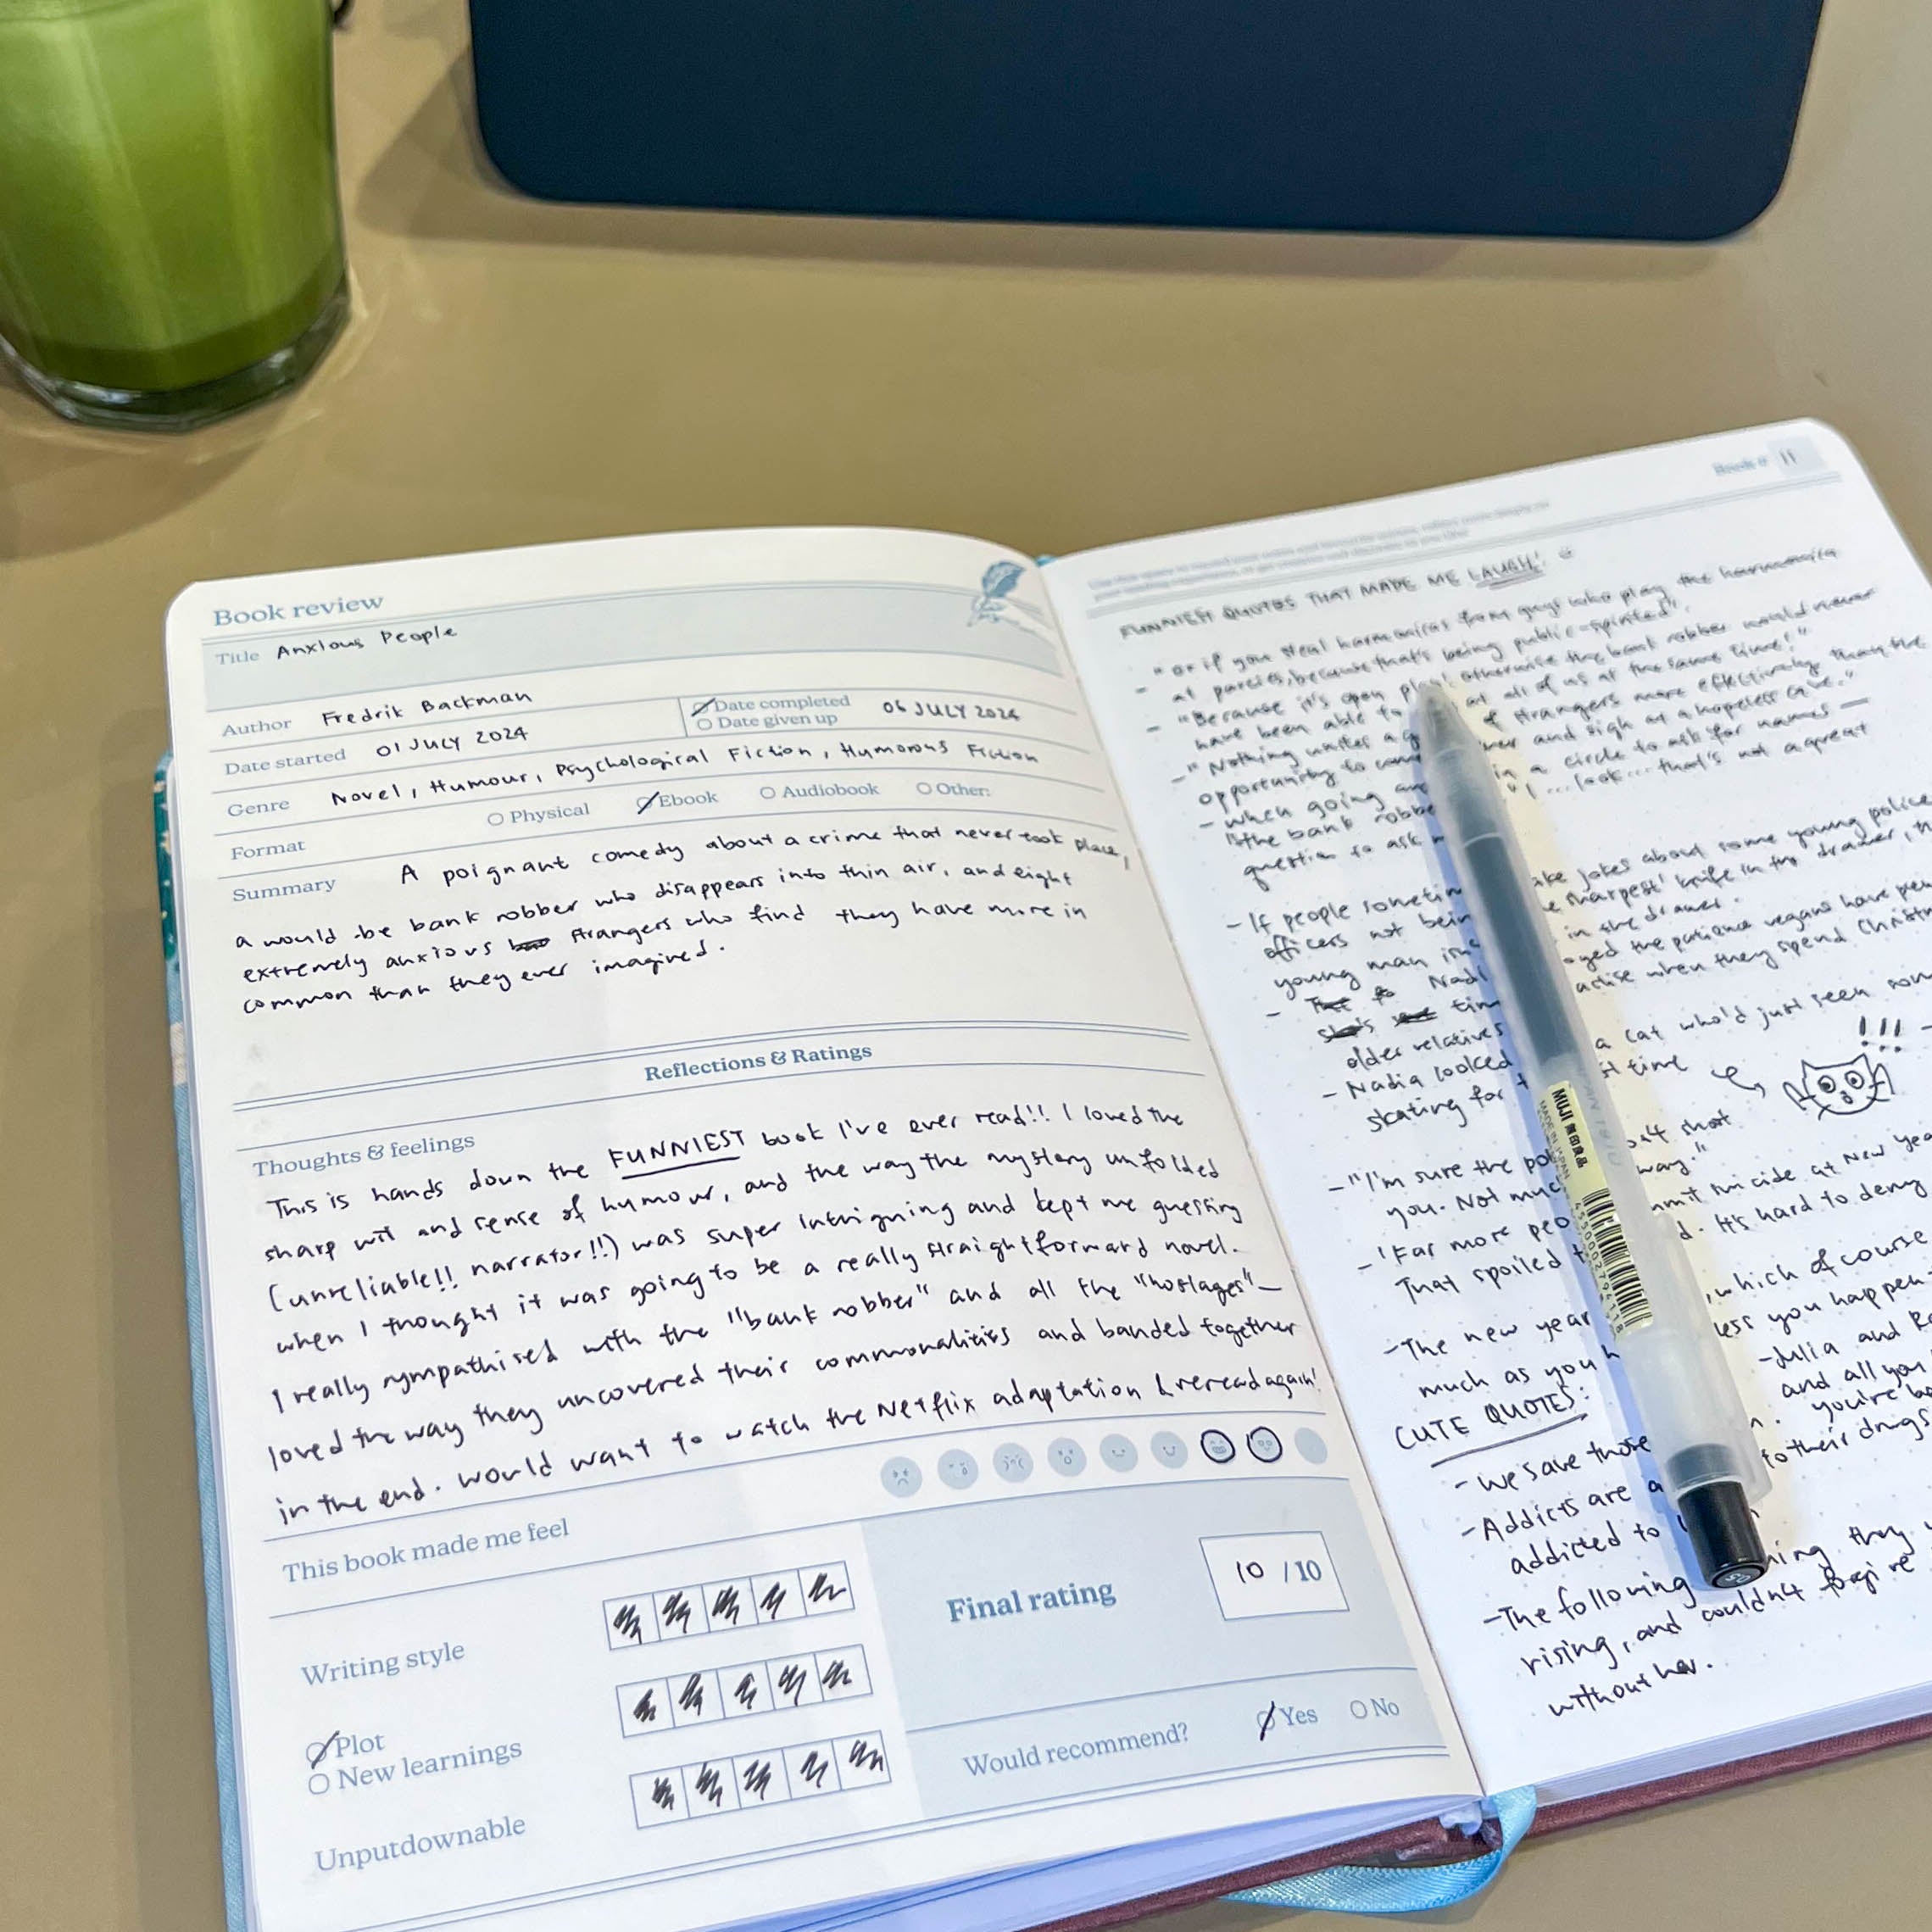 Book review
Title Anxious People
Author Fredrik Backman
Date completed
Date given up
06 JULY 2024
Date started 01 JULY 2024
Genre Novel, Humour, Psychological Fiction, Humorous Fiction
Format Physical Ebook Audiobook Other:
Summary A poignant comedy about a crime that never took place,
a would-be bank robber who disappears into thin air, and eight
extremely anxious strangers who find they have more in
common than they ever imagined.
Reflections & Ratings
Thoughts & feelings
This is hands down the FUNNIEST book I've ever read!! I loved the
sharp wit and sense of humour, and the way the mystery unfolded
(unreliable!! narrator!!) was super intriguing and kept me guessing
when I thought it was going to be a really straightforward novel.
I really sympathised with the "bank robber" and all the "hostages"—
loved the way they uncovered their commonalities and banded together
in the end. Would want to watch the Netflix adaptation & reread again!
This book made me feel
Writing style
Plot
New learnings
Unputdownable
Final rating 10 /10
Would recommend? Yes No
Book # 11
FUNNIEST QUOTES THAT MADE ME LAUGH!
- "or if you steal harmonicas from guys who play the harmonica
at parties, because that's being public-spirited".
- "Because it's open plan! otherwise the bank robber would never
have been able to at all of us at the same time!"
- "Nothing unites a of strangers more effectively than the
opportunity to and sigh at a hopeless case."
- When going in a circle to ask for names —
"the bank robbe "I ... look... that's not a great
question to ask
- If people sometim jokes about some young police
officers not bein sharpest' knife in the drawer,
young man in the drawer.
- Nadi the patience vegans have
tim when they spend Christm
older relatives
- Nadia looked a cat who'd just seen
skating for t time
!!!
- "I'm sure the pol shoot
you. Not muc way."
- 'Far more peo suicide at New Yea
That spoiled It's hard to deny
- The new year , which of course
much as you you happen
- Julia and
and all you
CUTE QUOTES: you're
- We save those
- Addicts are a to their drugs
addicted to
- The following they
rising, and couldn't forgive
without her.
MUJI 無印良品
MADE IN JAPAN
4550002794118